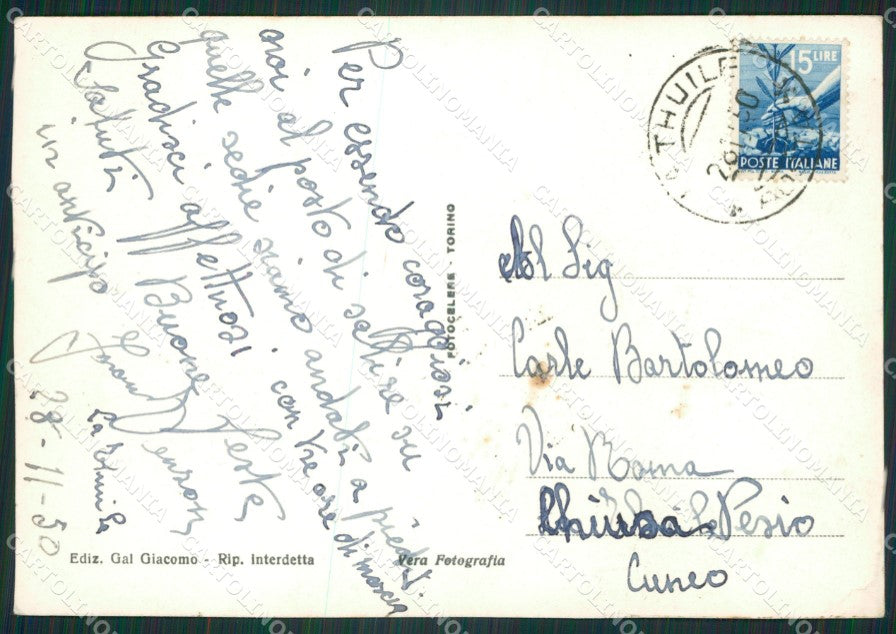 Per essendo coraggiosi
noi al posto di sallire su
quelle sedie siamo andati a piedi
con tre ore di marcia
Gradisci affettuosi
saluti Buone Feste
in anticipo
La Thuile
28-11-50
Ediz. Gal Giacomo - Rip. Interdetta
Vera Fotografia
FOTOCELERE - TORINO
15 LIRE
POSTE ITALIANE
THUILE
Al Sig
Carle Bartolomeo
Via Roma
Chiusa Pesio
Cuneo
CARTOLINOMANIA